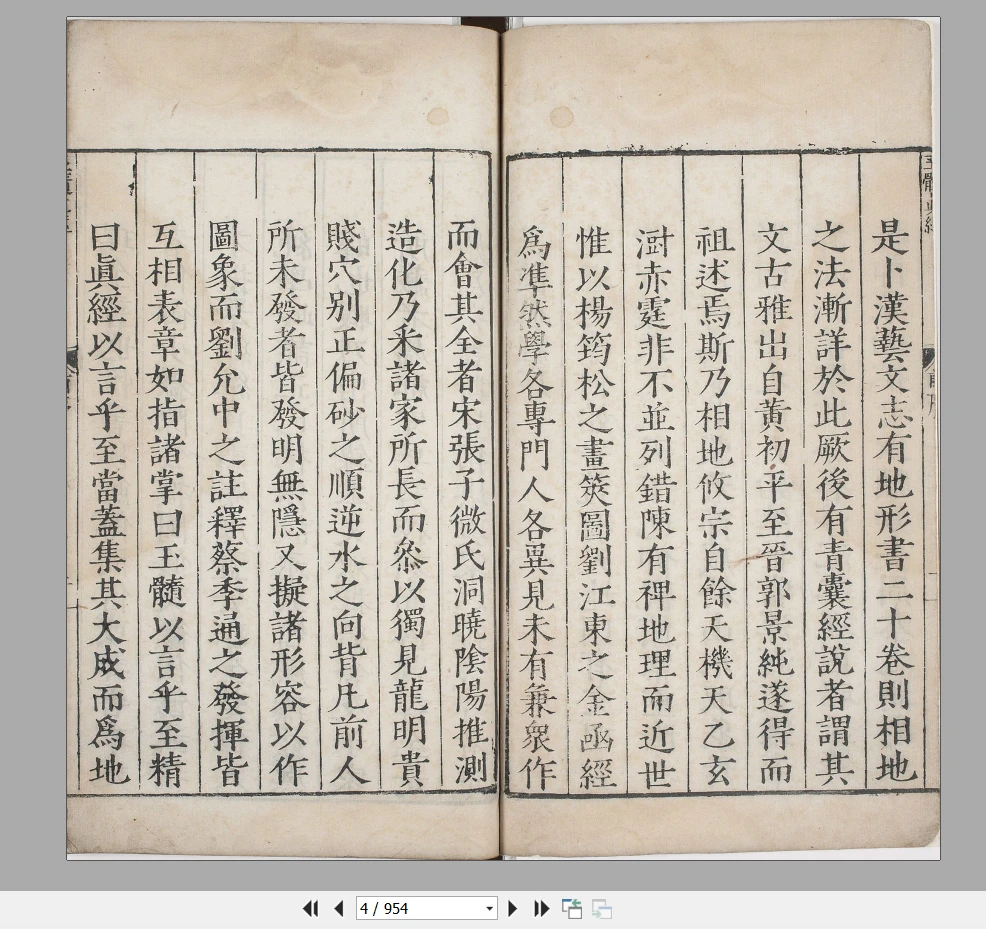 是卜漢藝文志有地形書二十卷則相地
之法漸詳於此厥後有青囊經說者謂其
文古雅出自黃初平至晉郭景純遂得而
祖述焉斯乃相地攸宗自餘天機天乙玄
澍赤霆非不並列錯陳有裨地理而近世
惟以楊筠松之畫筴圖劉江東之金函經
爲凖然學各專門人各異見未有兼衆作
而會其全者宋張子微氏洞曉陰陽推測
造化乃釆諸家所長而叅以獨見龍明貴
賤穴别正偏砂之順逆水之向背凡前人
所未發者皆發明無隱又擬諸形容以作
圖象而劉允中之註釋蔡季通之發揮皆
互相表章如指諸掌曰玉髓以言乎至精
曰眞經以言乎至當蓋集其大成而爲地
4 / 954